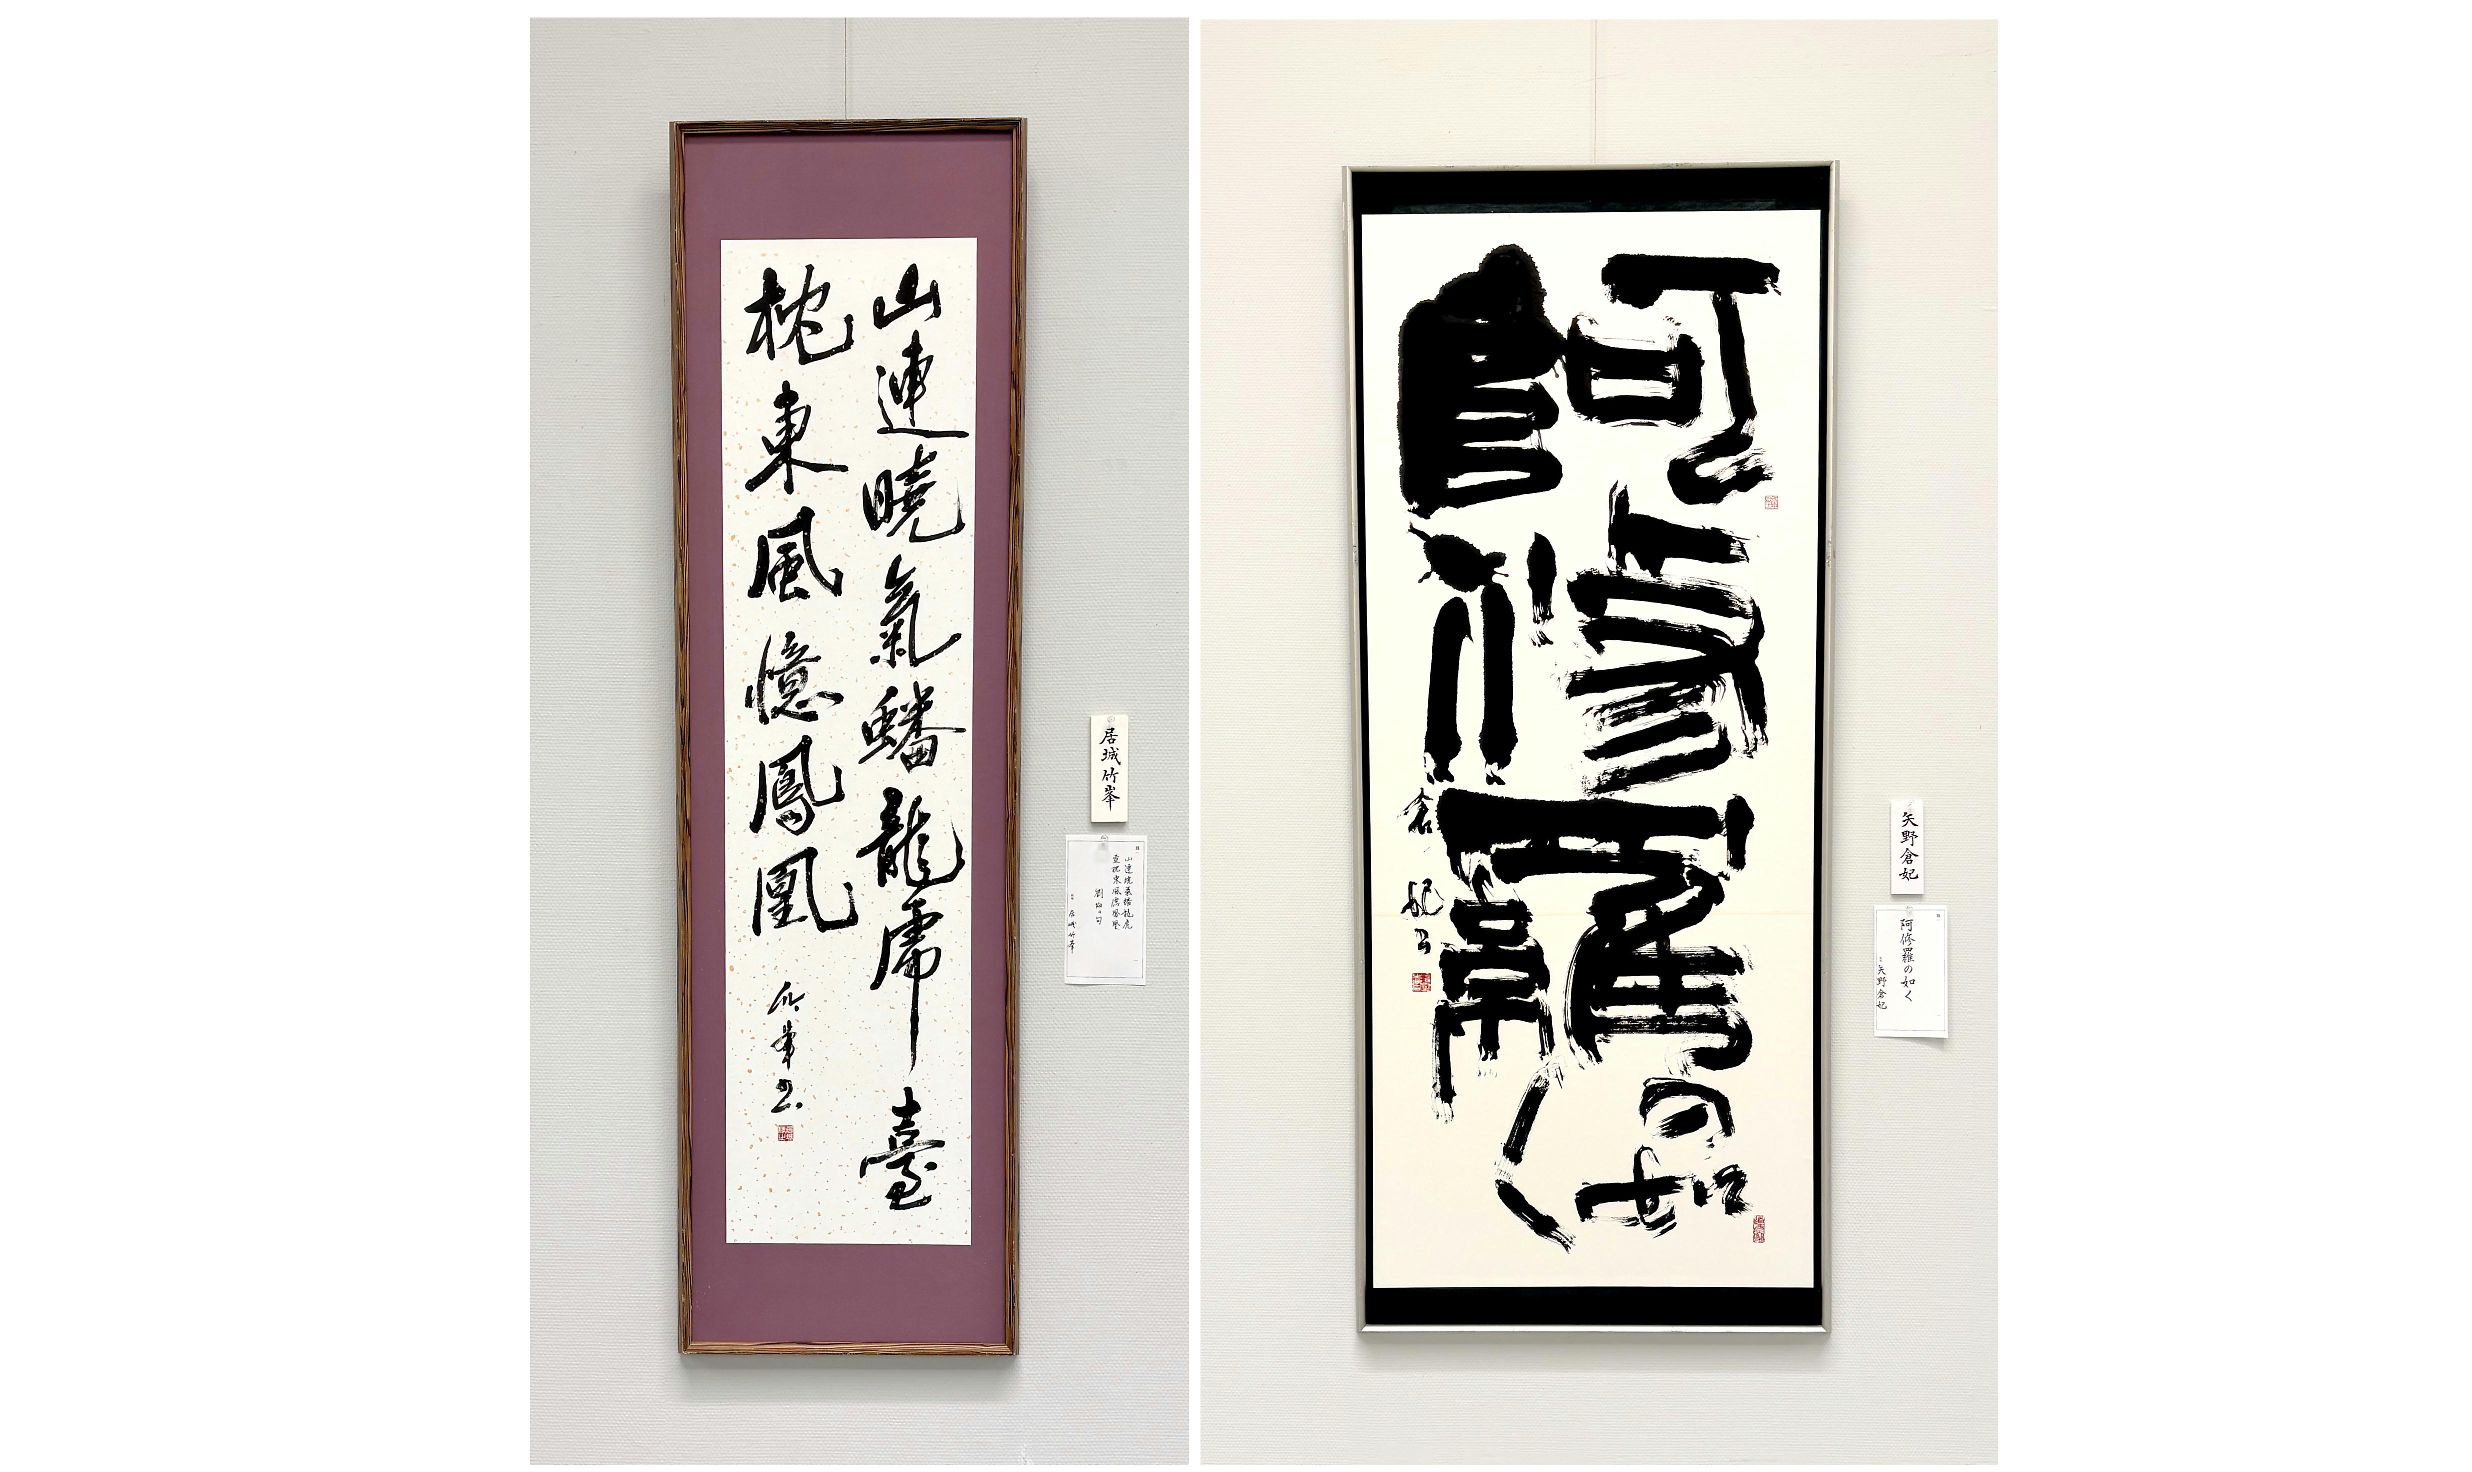 山連曉氣蟠龍虎臺
枕東風憶鳳凰
竹峯書
居城竹峯
山連曉氣蟠龍虎
臺枕東風憶鳳凰
居城竹峯
阿修羅の如く
倉妃書
矢野倉妃
阿修羅の如く
矢野倉妃